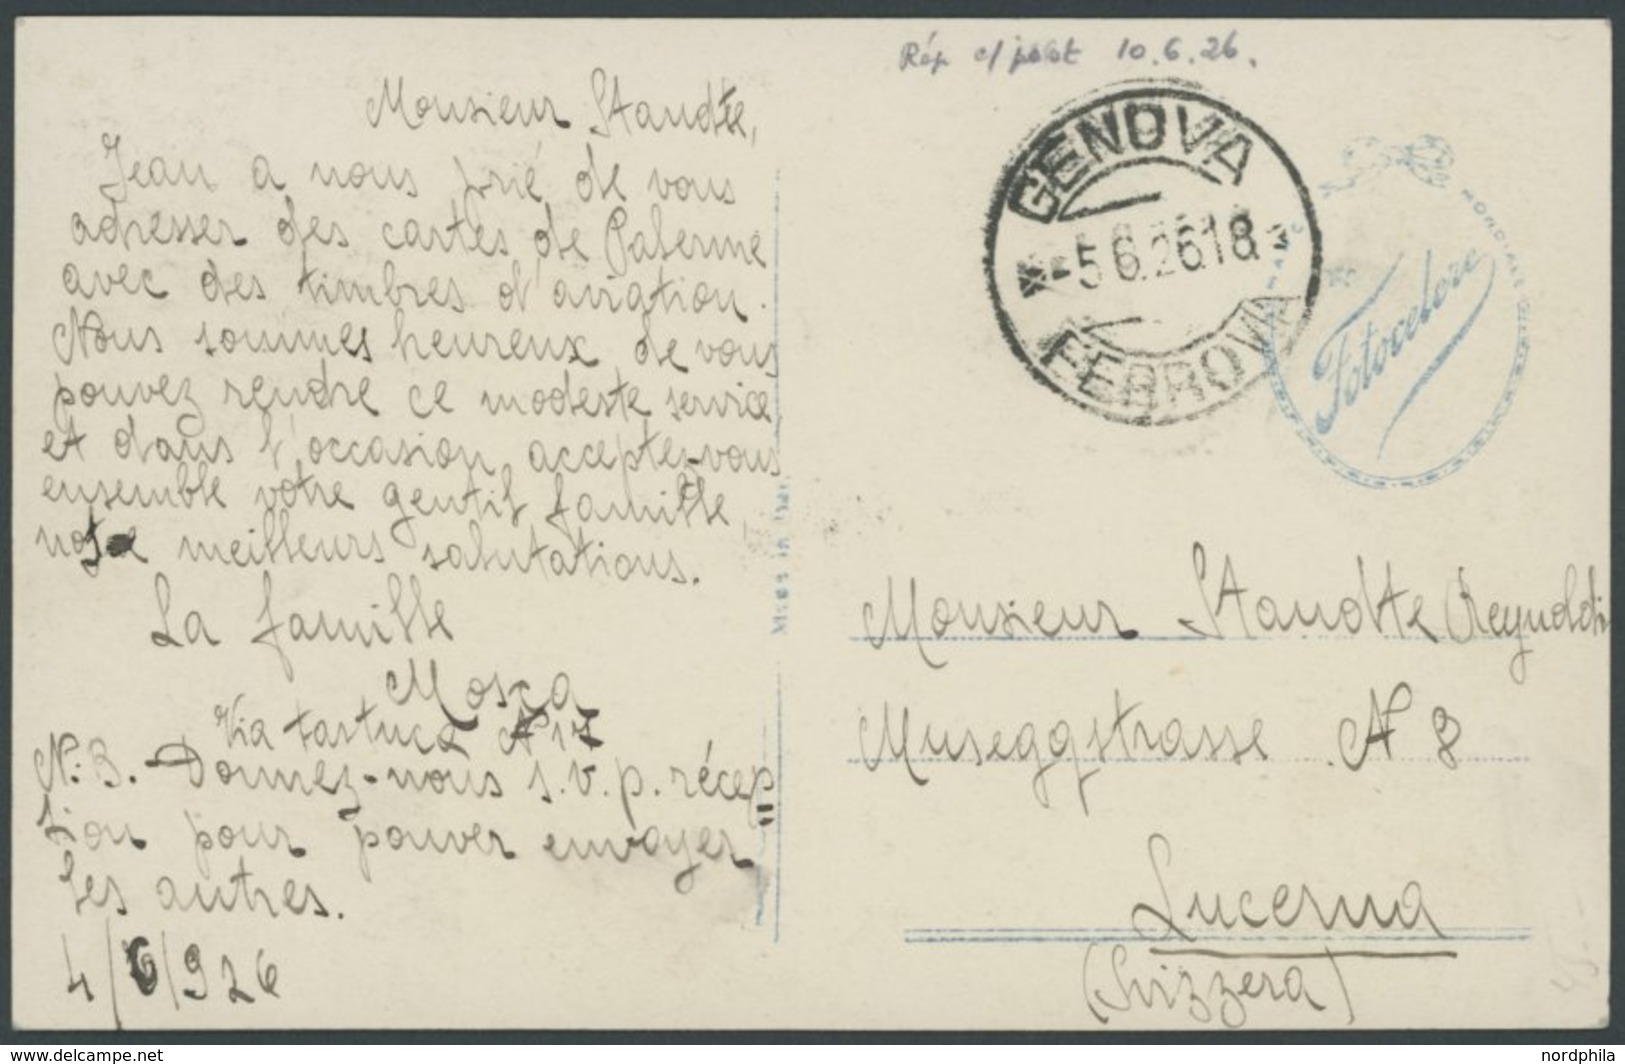 Monsieur Staudte,
Jean a nous prié de vous
adresser des cartes de Palerme
avec des timbres d'aviation.
Nous sommes heureux de vous
pouvez rendre ce modeste service
et dans l'occasion acceptez-vous
ensemble votre gentil famille
notre meilleurs salutations.
La famille
Mosca
Via Tartuca N 17
N.B. - Donnez-nous s.v.p. récep
tion pour pouver envoyer
les autres.
4/6/926
Made in Italy
Rép c/ post 10.6.26.
GENOVA
-5 6.26 18
FERROVIA
MONDIALE
Fotocelere
Monsieur Staudte Reynoldi
Museggstrasse N 8
Lucerna
(Svizzera)
www.delcampe.net
nordphila